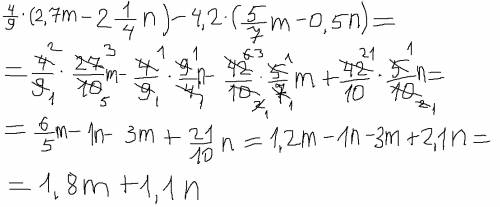 4/9 · (2,7m - 2 1/4 n) - 4,2 · (5/7 m - 0,5n) =
= 4/9 · 27/10 m - 4/9 · 9/4 n - 42/10 · 5/7 m + 42/10 · 5/10 n =
= 6/5 m - 1n - 3m + 21/10 n = 1,2m - 1n - 3m + 2,1n =
= 1,8m + 1,1n